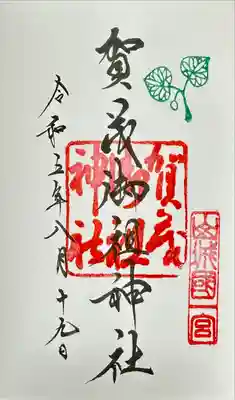 山城國
一宮
賀茂御祖神社
賀茂
御祖
神社
令和五年八月十九日